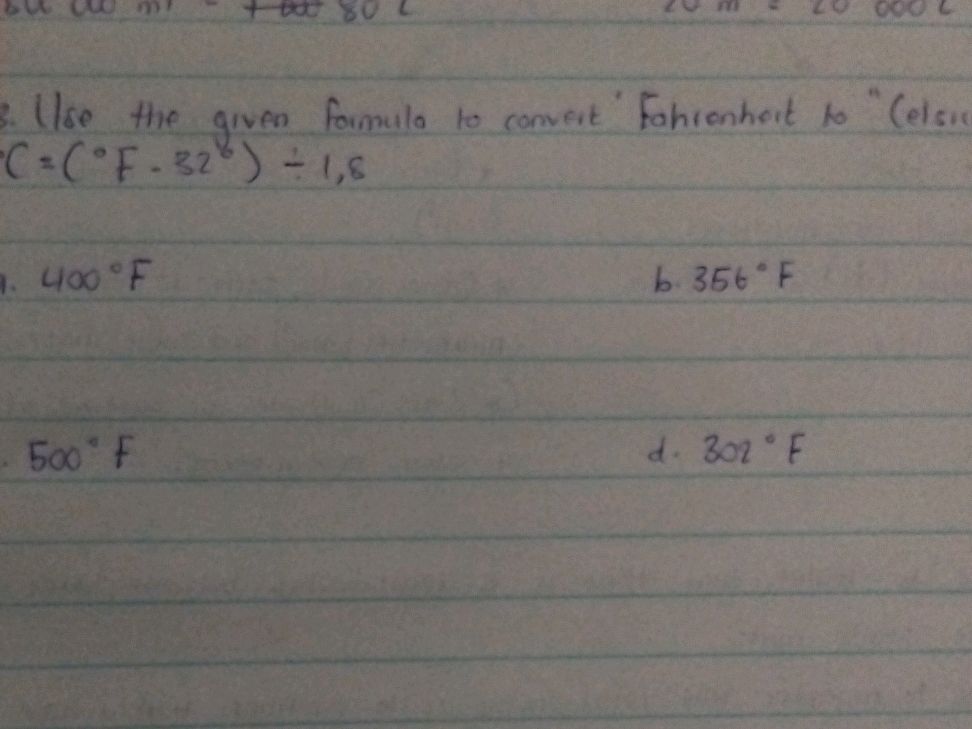 80 L
20 m = 20 000 L
3. Use the given formula to convert °Fahrenheit to °Celsiu
°C = (°F - 32°) ÷ 1,8
a. 400°F b. 356°F
. 500°F d. 302°F